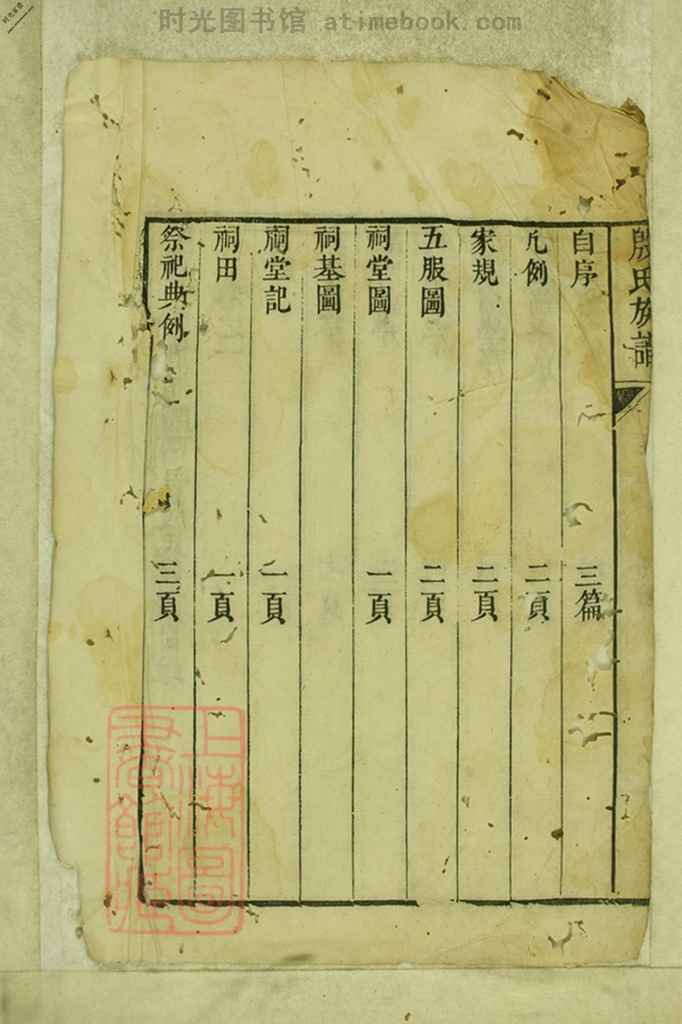 时光图书馆 atimebook.com
殷氏族譜
自序 三篇
凡例 二頁
家規 二頁
五服圖 二頁
祠堂圖 一頁
祠基圖
祠堂記 一頁
祠田 一頁
祭祀典例 三頁
上海圖
書館藏